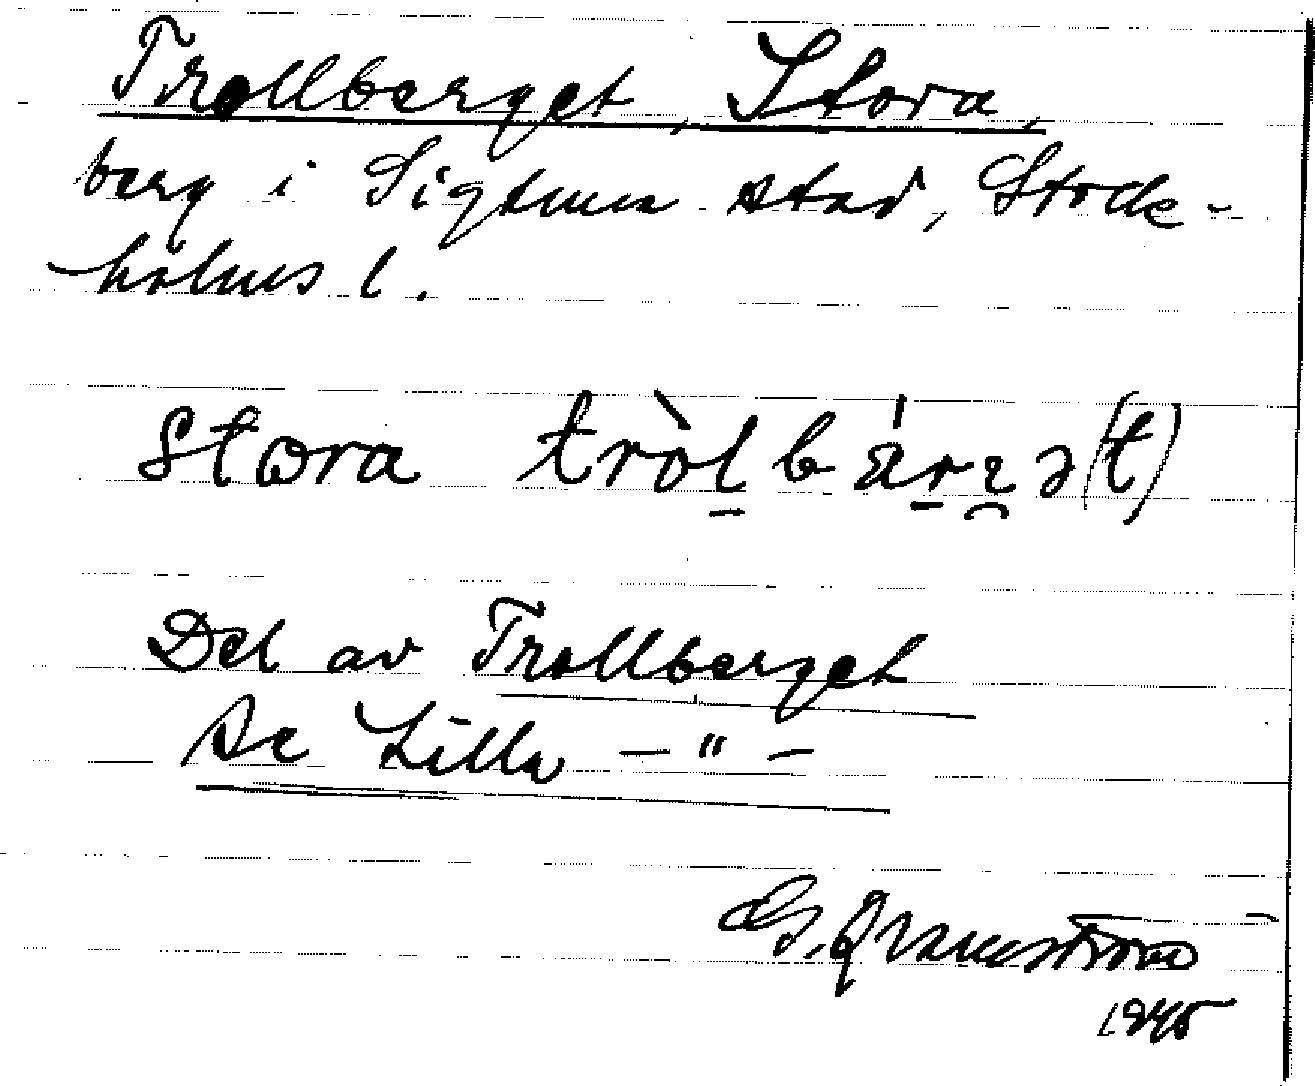 Trollberget, Stora,
berg i Sigtuna stad, Stock-
holms l.
Stora tròl̠bár̠ɿ̯ə(t)
Del av Trollberget
Se Lilla –"–
G. Qvarnström
1945